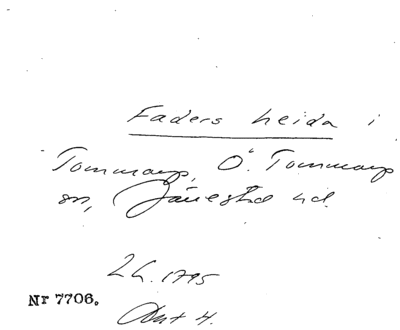 Faders heida i
Tommarp, Ö. Tommarp
sn, Järrestad hd.
Lh. 1795
Nr 7706.
Akt 4.